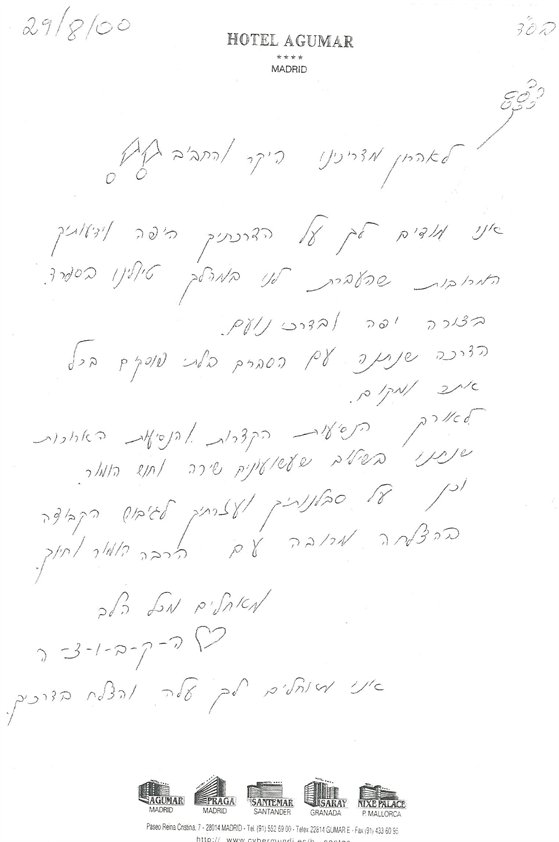 29/8/00
בס"ד
HOTEL AGUMAR
★★★★
MADRID
לאהרון מדריכינו היקר והחביב
אנו מודים לך על הדרכתך היפה וידיעותיך
המרובות שהעברת לנו במהלך טיולינו בספרד.
בצורה יפה ובדרכי נועם.
הדרכה שנתנה עם הסברים בלתי פוסקים בכל
אתר ומקום.
לאורך הנסיעות הקצרות והנסיעות הארוכות
שנתנו בשילוב שעשועונים שירה וחוש הומור.
וכן על סבלנותיך ועזרתיך לגיבוש הקבוצה
בהצלחה מרובה עם הרבה הומור וחוק.
מאחלים מכל הלב
ה-ק-ב-ו-צ-ה
אנו מאחלים לך עלה והצלח בדרכים.
AGUMAR PRAGA SANTEMAR SARAY NIXE PALACE
MADRID MADRID SANTANDER GRANADA P. MALLORCA
Paseo Reina Cristina, 7 - 28014 MADRID - Tel. (91) 552 69 00 - Telex 22814 GUMAR E - Fax (91) 433 60 95